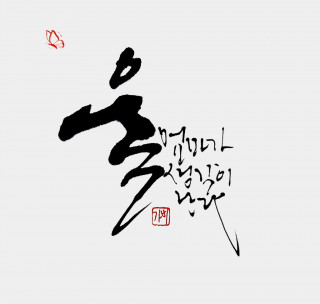 울
엄마가
생각이
난다